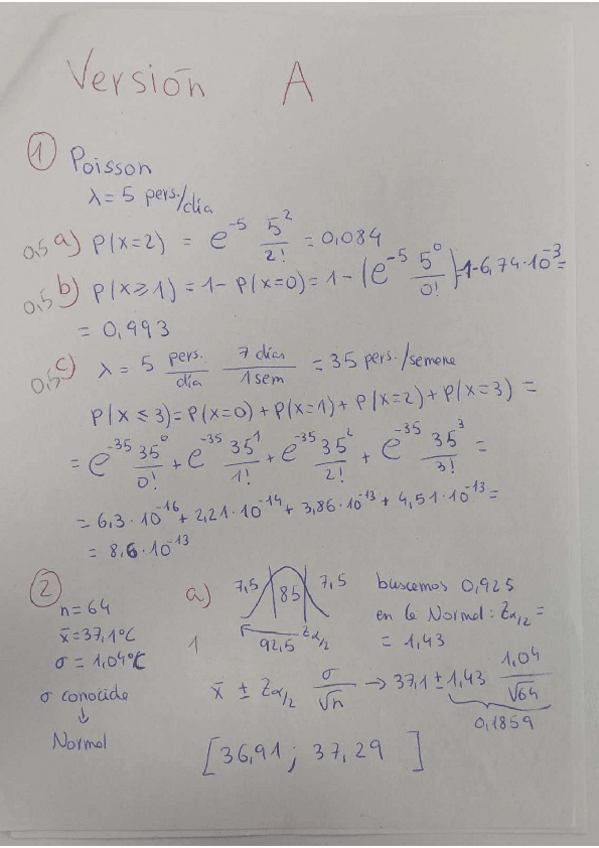 Versión A
1 Poisson
λ = 5 pers./día
0,5 a) P(x=2) = e^-5 5^2/2! = 0,084
0,5 b) P(x≥1) = 1- P(x=0) = 1 - (e^-5 5^0/0!) = 1-6,74·10^-3 =
= 0,993
0,5 c) λ = 5 pers./día 7 días/1 sem = 35 pers./semana
P(x≤3) = P(x=0) + P(x=1) + P(x=2) + P(x=3) =
= e^-35 35^0/0! + e^-35 35^1/1! + e^-35 35^2/2! + e^-35 35^3/3! =
= 6,3·10^-16 + 2,21·10^-14 + 3,86·10^-13 + 4,51·10^-13 =
= 8,6·10^-13
2
n = 64
x̄ = 37,1ºC
σ = 1,04ºC
σ conocida
↓
Normal
a) 7,5 85 7,5
92,5 Zα/2
1
buscamos 0,925
en la Normal: Zα/2 =
= 1,43
x̄ ± Zα/2 σ/√n → 37,1 ± 1,43 1,04/√64
0,1859
[36,91 ; 37,29]